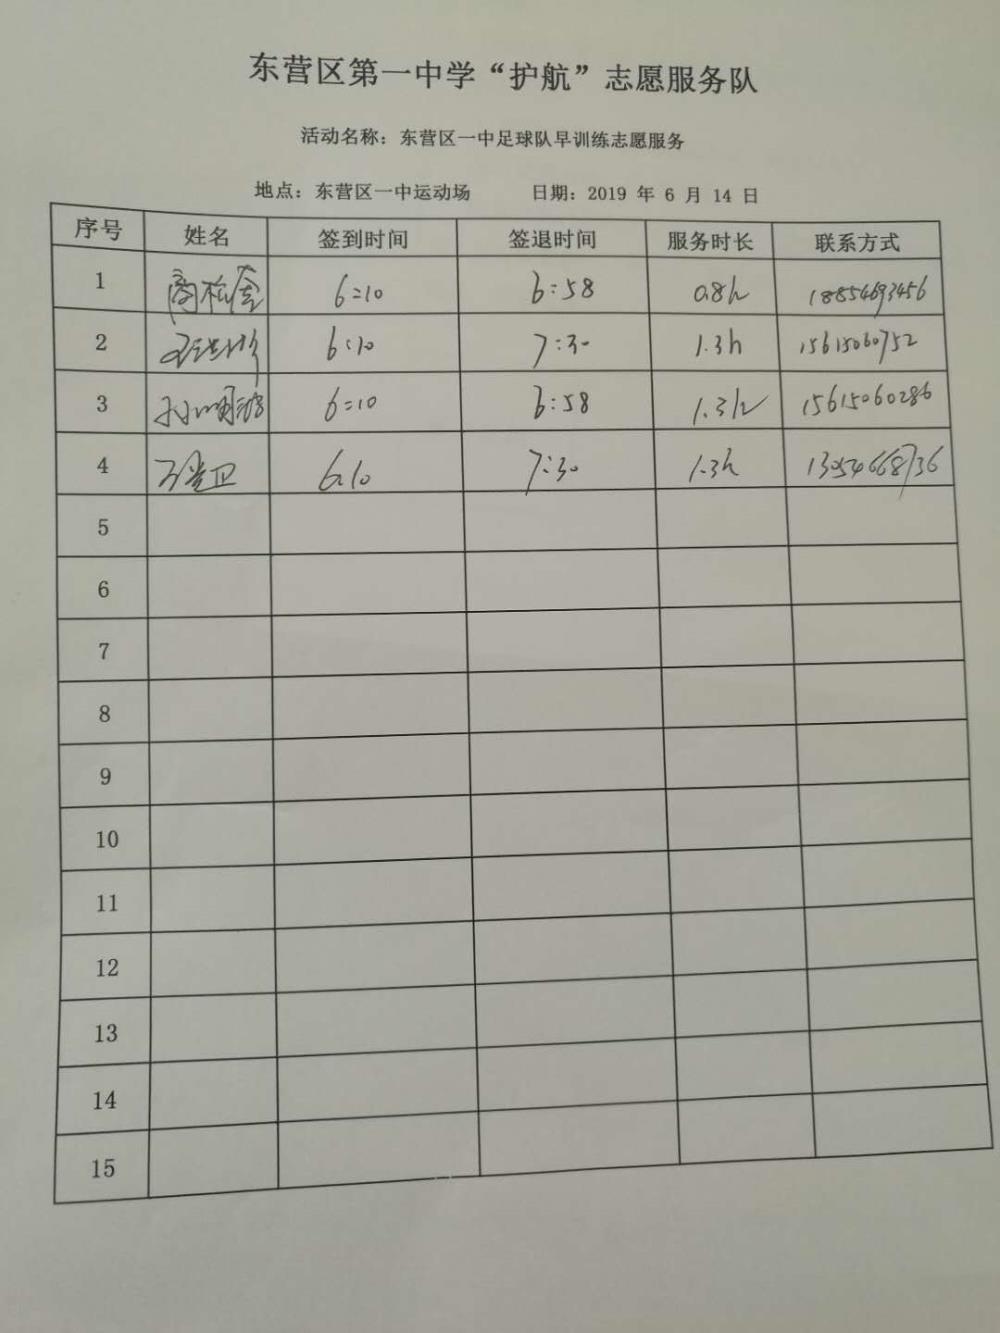 东营区第一中学“护航”志愿服务队
活动名称：东营区一中足球队早训练志愿服务
地点：东营区一中运动场 日期：2019 年 6 月 14 日
序号 姓名 签到时间 签退时间 服务时长 联系方式
1 6:10 6:58 0.8h 18854693456
2 6:10 7:30 1.3h 15615060752
3 6:10 6:58 1.3h 15615060286
4 6:10 7:30 1.3h 13054668736
5
6
7
8
9
10
11
12
13
14
15